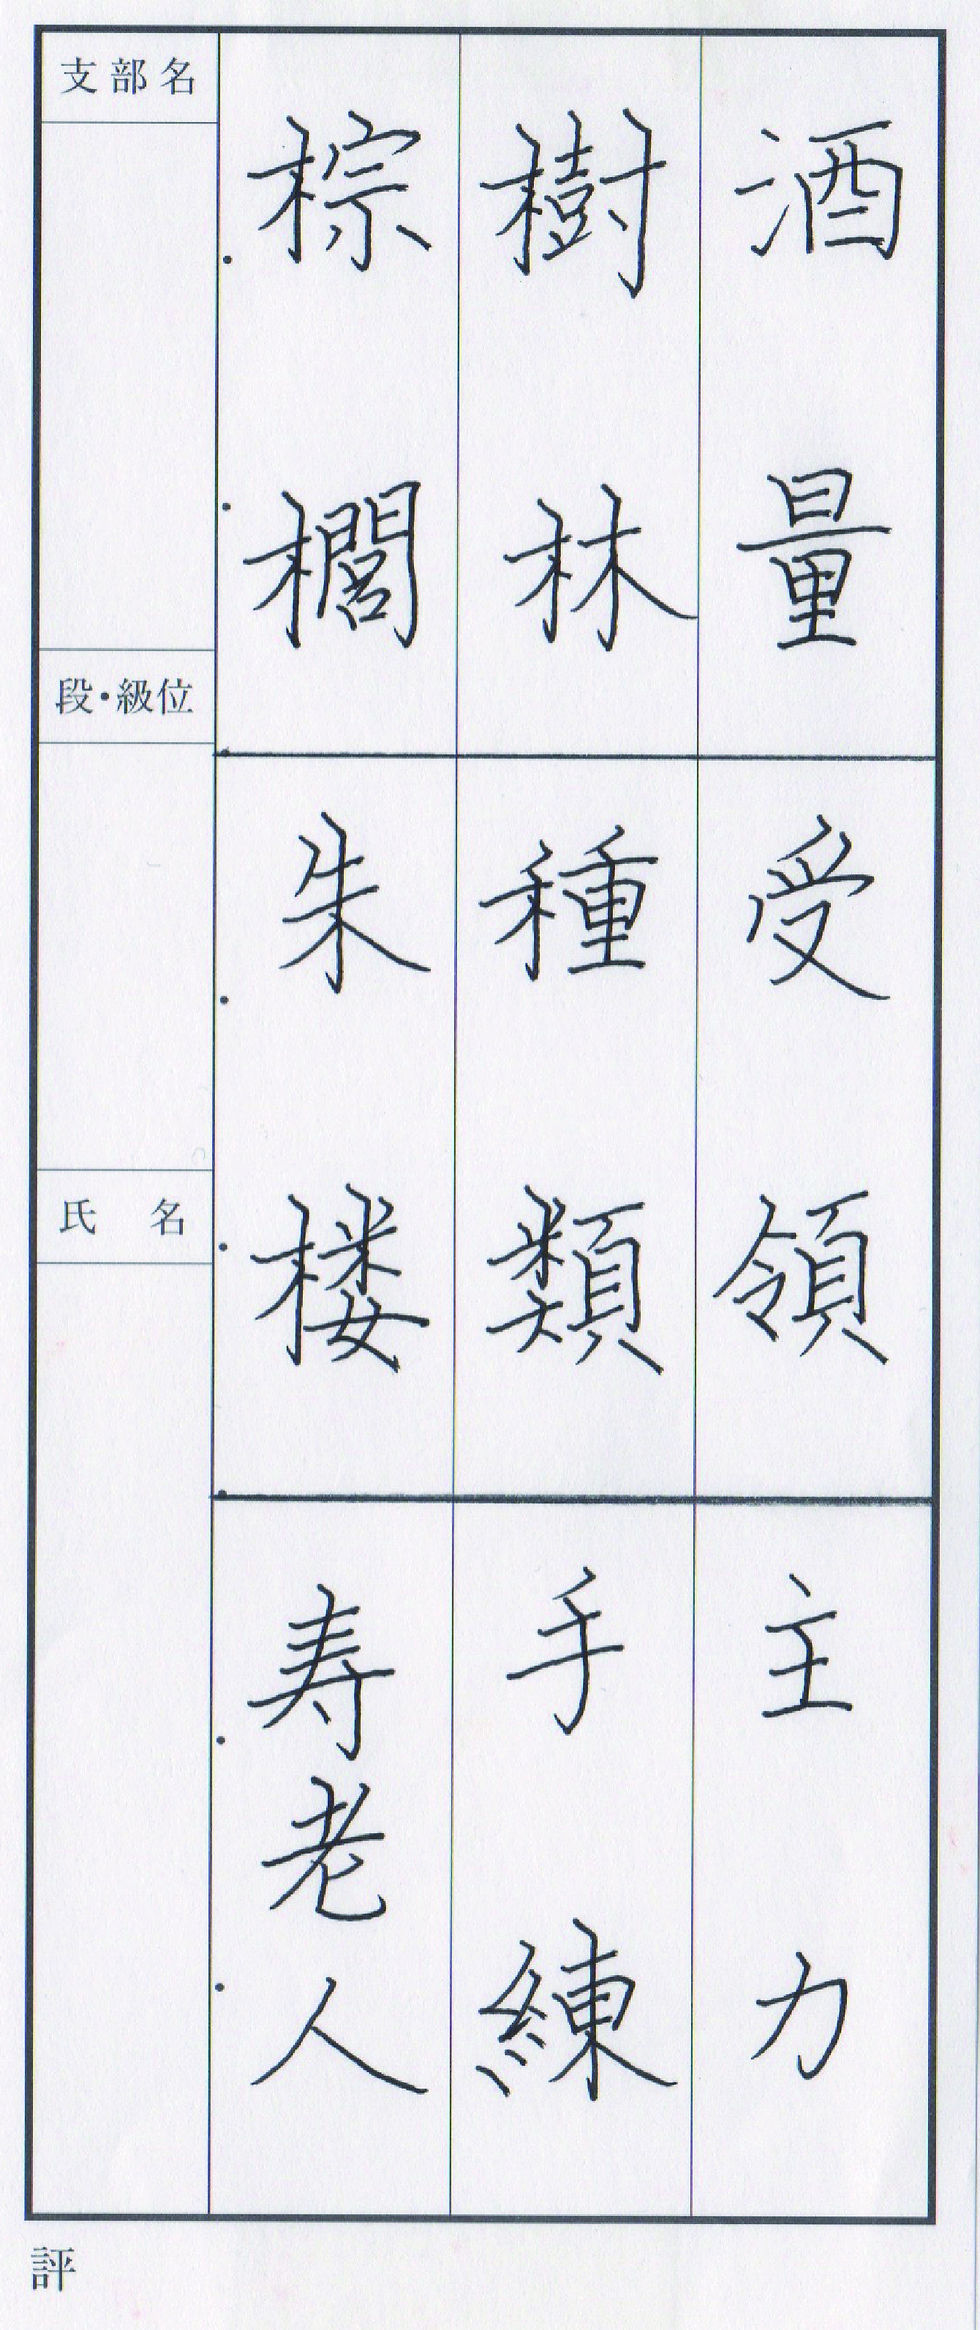 酒量 受領 主力
樹林 種類 手練
棕櫚 朱楼 寿老人
支部名
段・級位
氏名
評